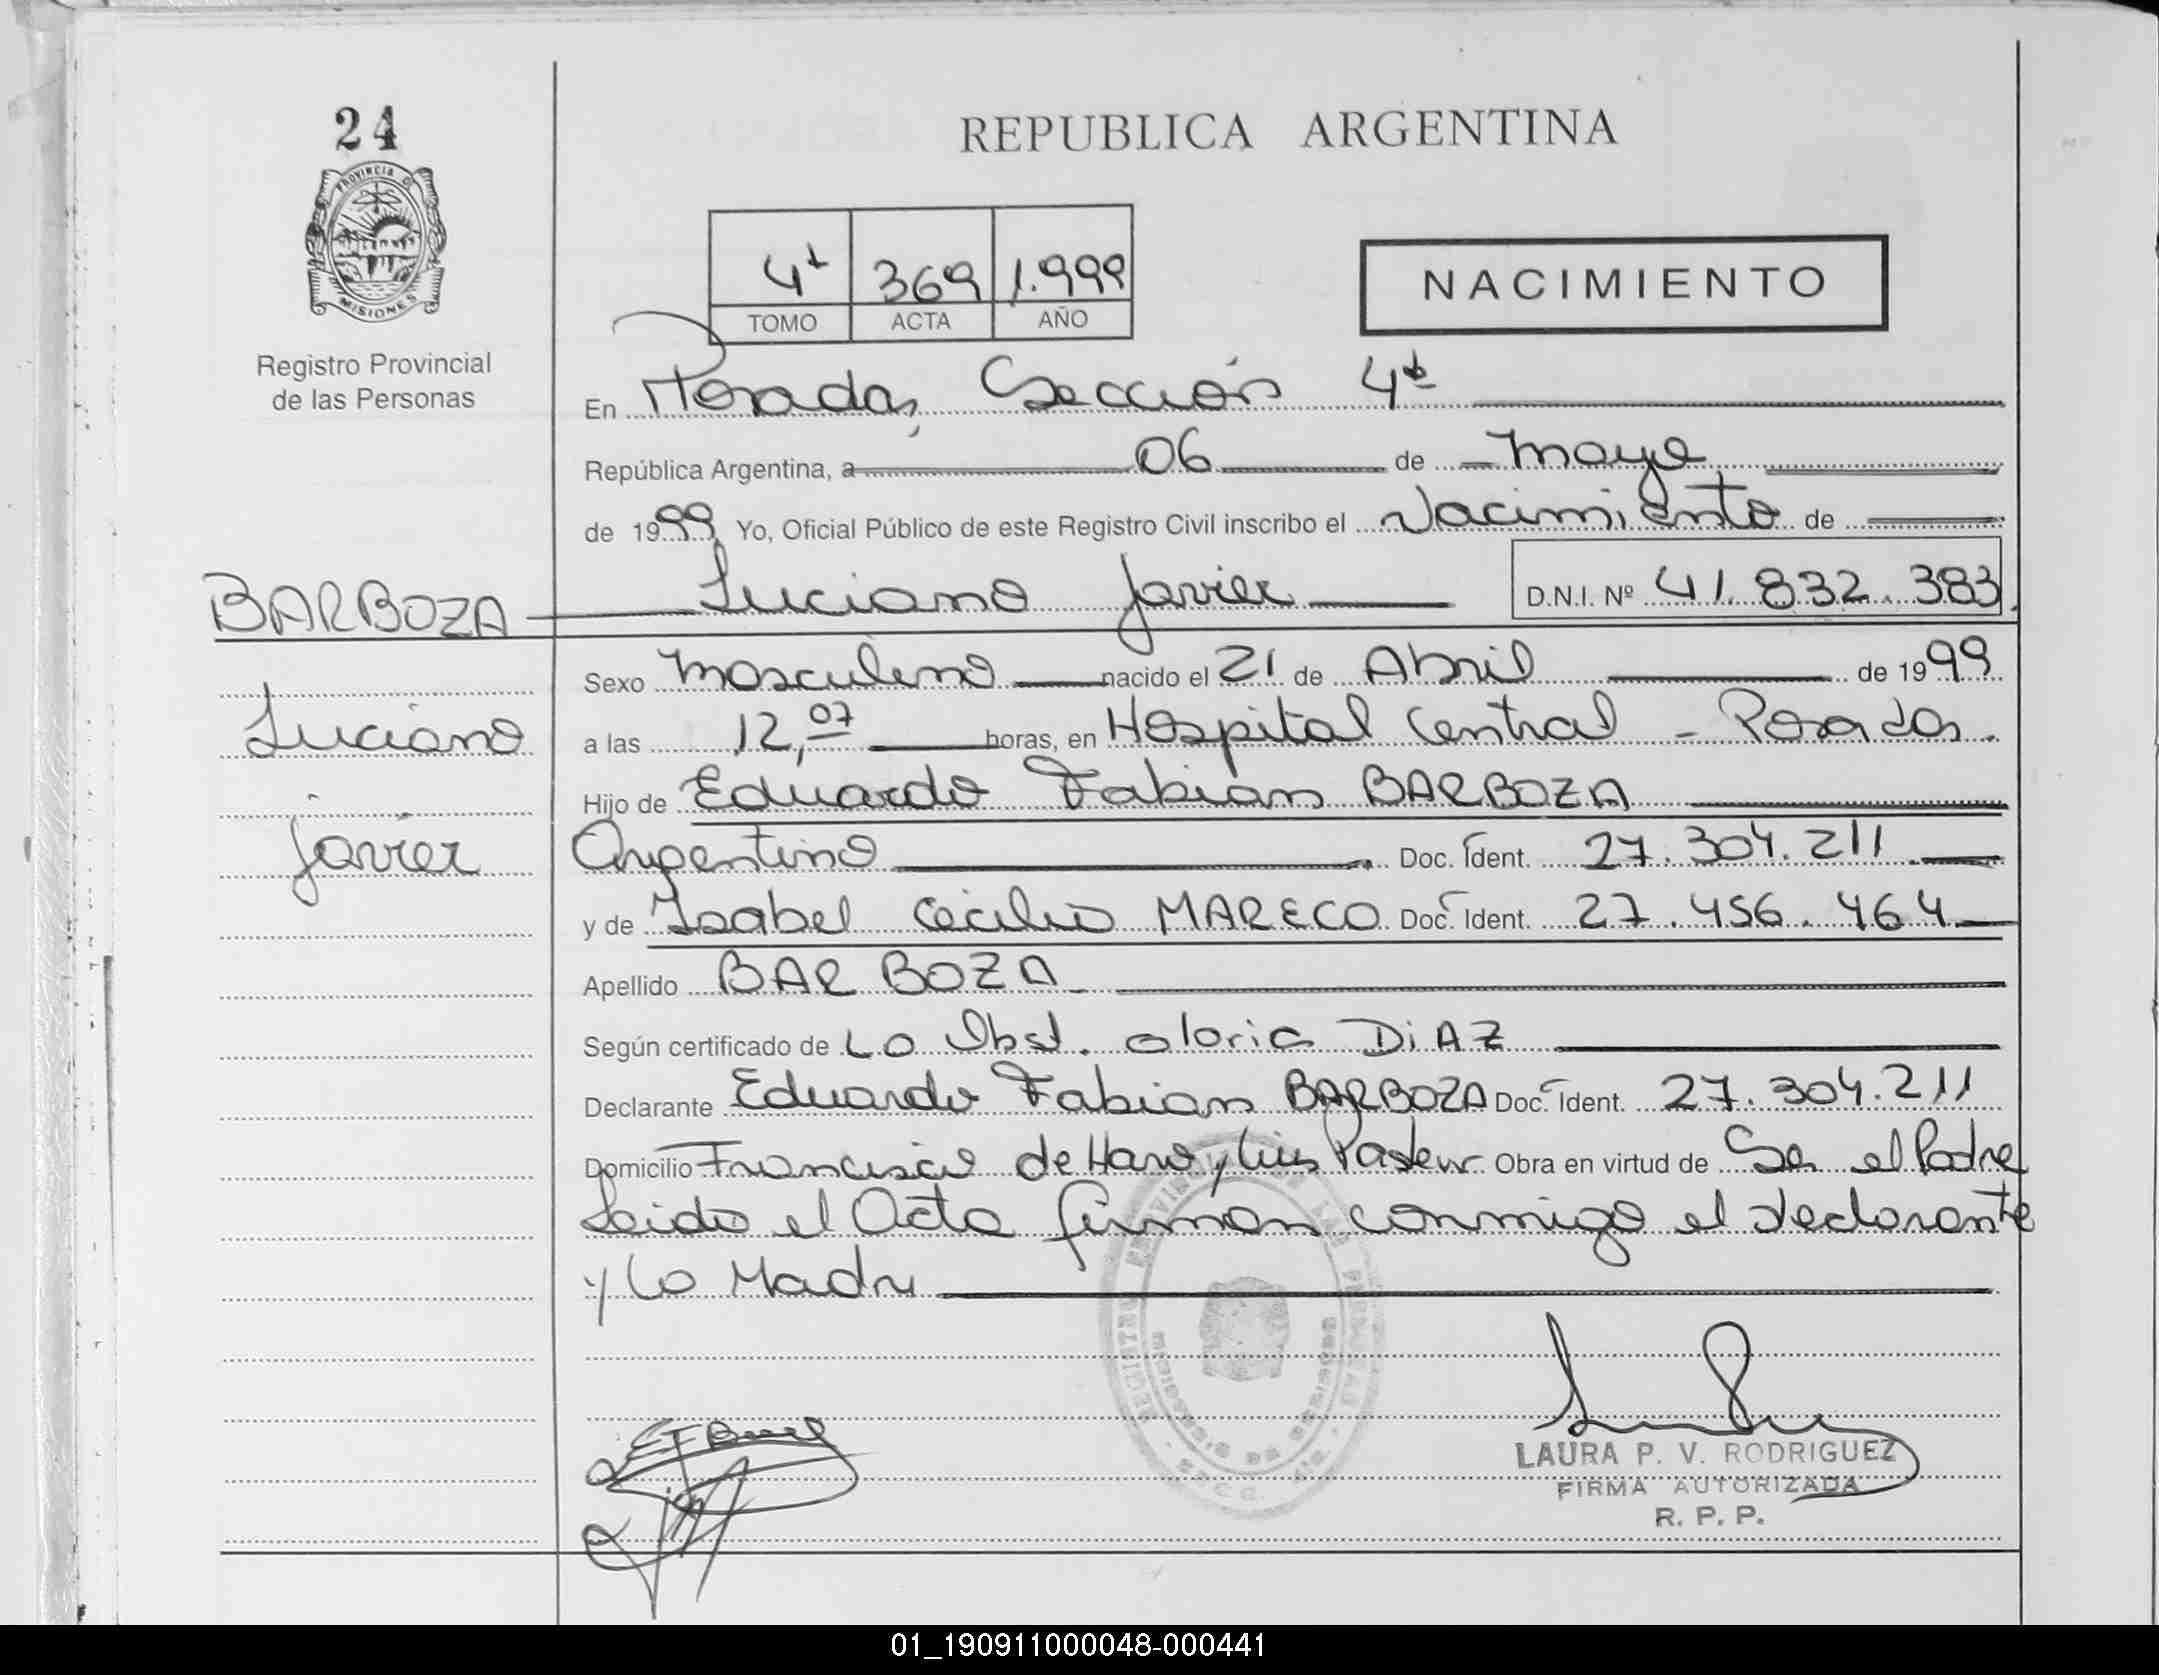 24
PROVINCIA DE
MISIONES
Registro Provincial
de las Personas
REPUBLICA ARGENTINA
4ª 369 1.999
TOMO ACTA AÑO
NACIMIENTO
En Posadas, Sección 4ª
República Argentina, a 06 de mayo
de 1999, Yo, Oficial Público de este Registro Civil inscribo el Nacimiento de
BARBOZA Luciano Javier D.N.I. Nº 41.832.383
Sexo masculino nacido el 21 de Abril de 1999
Luciano
a las 12,07 horas, en Hospital Central - Posadas.
Hijo de Eduardo Fabian BARBOZA
Javier
Argentino Doc. Ident. 27.304.211
y de Isabel Cecilia MARECO Doc. Ident. 27.456.464
Apellido BARBOZA
Según certificado de La Obst. Gloria DIAZ
Declarante Eduardo Fabian BARBOZA Doc. Ident. 27.304.211
Domicilio Francisco de Haro y Luis Pasteur Obra en virtud de Ser el Padre
Leida el Acta firman conmigo el declarante
y la Madre
LAURA P. V. RODRIGUEZ
FIRMA AUTORIZADA
R. P. P.
01_190911000048-000441